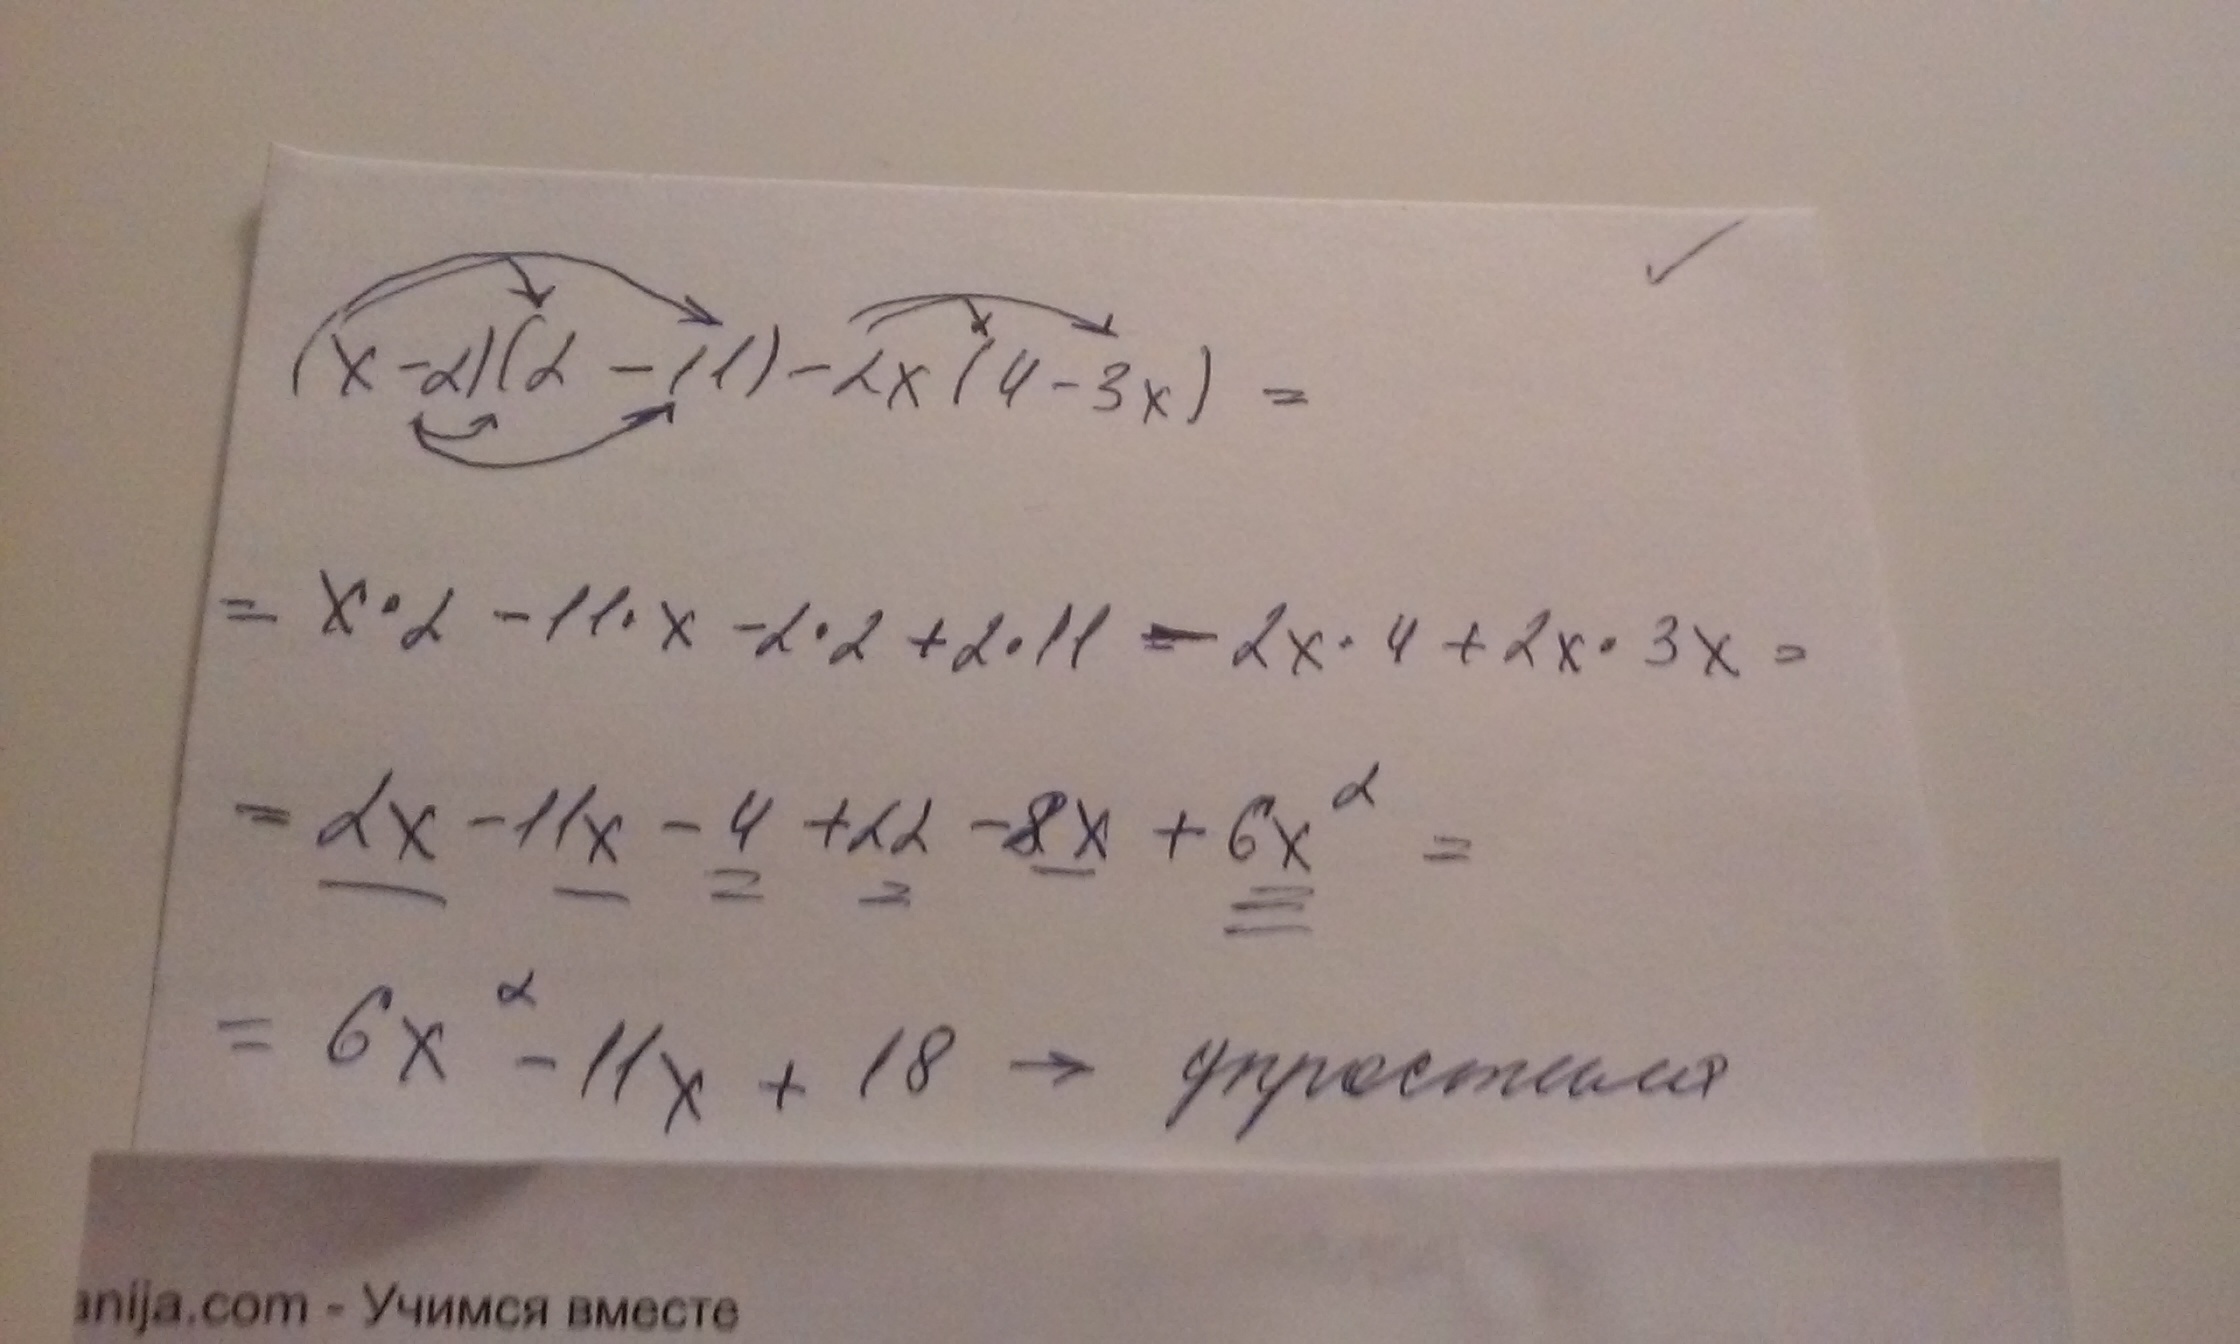 (x-2)(2-11)-2x(4-3x)=
=x·2-11·x-2·2+2·11-2x·4+2x·3x=
=2x-11x-4+22-8x+6x²=
=6x²-11x+18→упростили
anija.com - Учимся вместе